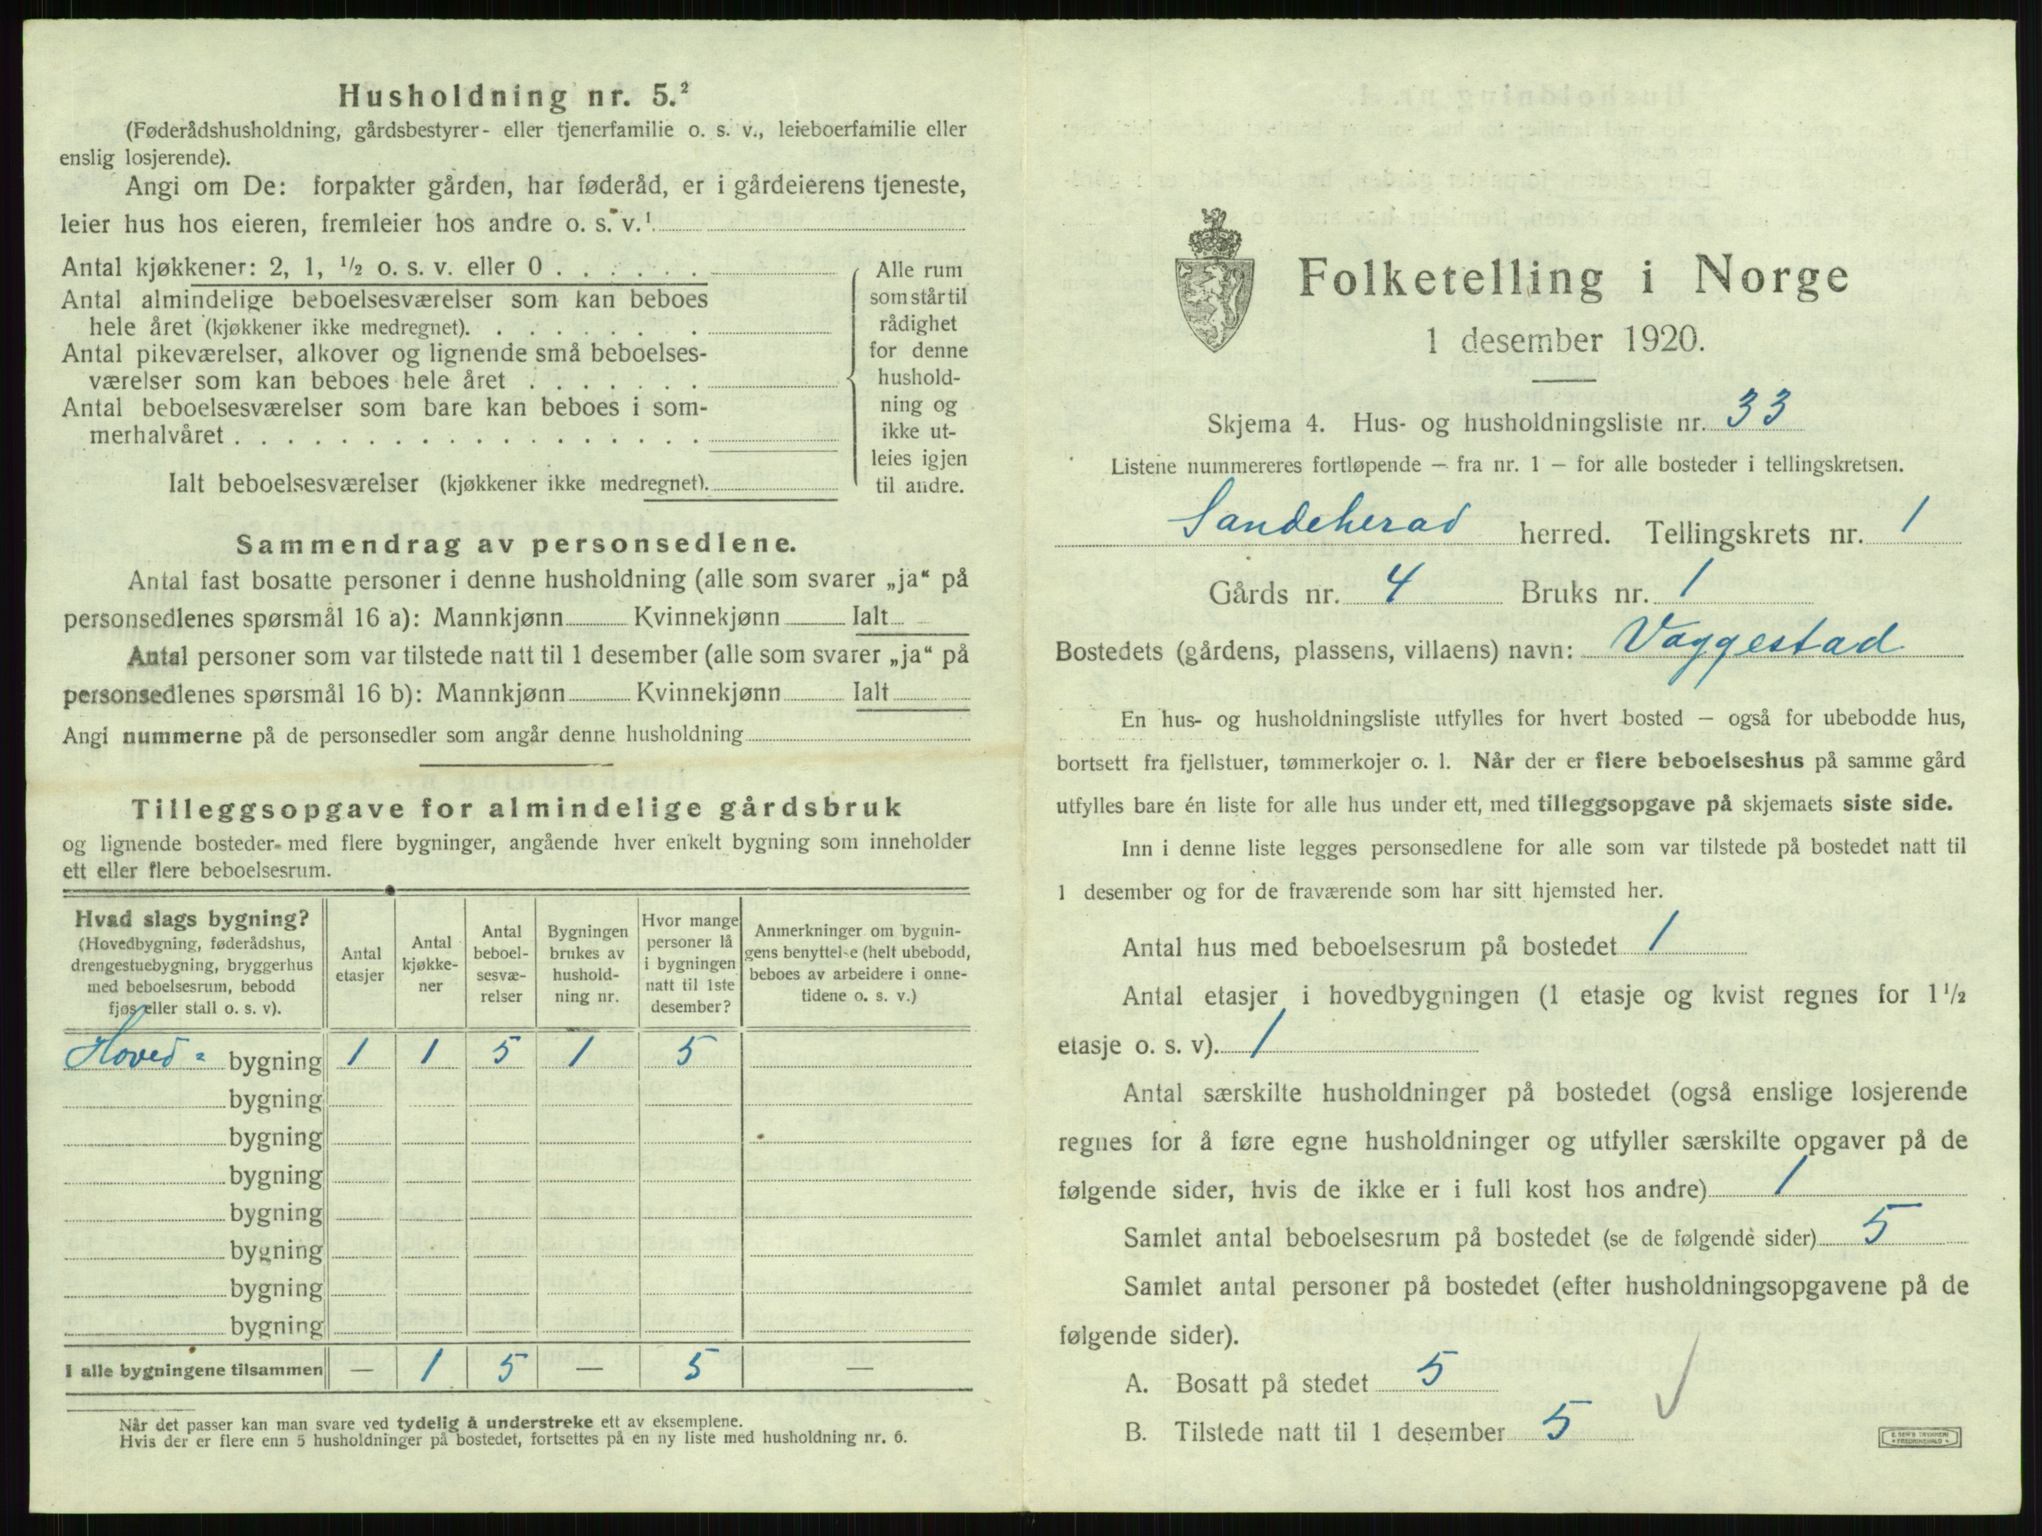 Husholdning nr. 5.²
(Føderådshusholdning, gårdsbestyrer- eller tjenerfamilie o. s. v., leieboerfamilie eller
enslig losjerende).
Angi om De: forpakter gården, har føderåd, er i gårdeierens tjeneste,
leier hus hos eieren, fremleier hos andre o. s. v.¹
Antal kjøkkener: 2, 1, ½ o. s. v. eller 0 . . . . . .
Antal almindelige beboelsesværelser som kan beboes
hele året (kjøkkener ikke medregnet). . . . . . . .
Antal pikeværelser, alkover og lignende små beboelses-
værelser som kan beboes hele året . . . . . . .
Antal beboelsesværelser som bare kan beboes i som-
merhalvåret . . . . . . . . . . . . . . . . . .
Ialt beboelsesværelser (kjøkkener ikke medregnet).
Alle rum
som står til
rådighet
for denne
hushold-
ning og
ikke ut-
leies igjen
til andre.
Sammendrag av personsedlene.
Antal fast bosatte personer i denne husholdning (alle som svarer „ja“ på
personsedlenes spørsmål 16 a): Mannkjønn Kvinnekjønn Ialt
Antal personer som var tilstede natt til 1 desember (alle som svarer „ja“ på
personsedlenes spørsmål 16 b): Mannkjønn Kvinnekjønn Ialt
Angi nummerne på de personsedler som angår denne husholdning
Tilleggsopgave for almindelige gårdsbruk
og lignende bosteder med flere bygninger, angående hver enkelt bygning som inneholder
ett eller flere beboelsesrum.
Hvad slags bygning?
(Hovedbygning, føderådshus,
drengestuebygning, bryggerhus
med beboelsesrum, bebodd
fjøs eller stall o. s. v).
Antal
etasjer
Antal
kjøkke-
ner
Antal
beboel-
sesvæ-
relser
Bygningen
brukes av
hushold-
ning nr.
Hvor mange
personer lå
i bygningen
natt til 1ste
desember?
Anmerkninger om bygnin-
gens benyttelse (helt ubebodd,
beboes av arbeidere i onne-
tidene o. s. v.)
Hoved- bygning 1 1 5 1 5
bygning
bygning
bygning
bygning
bygning
bygning
bygning
I alle bygningene tilsammen — 1 5 — 5 —
Når det passer kan man svare ved tydelig å understreke ett av eksemplene.
Hvis der er flere enn 5 husholdninger på bostedet, fortsettes på en ny liste med husholdning nr. 6.
Folketelling i Norge
1 desember 1920.
Skjema 4. Hus- og husholdningsliste nr. 33
Listene nummereres fortløpende – fra nr. 1 – for alle bosteder i tellingskretsen.
Sandeherad herred. Tellingskrets nr. 1
Gårds nr. 4 Bruks nr. 1
Bostedets (gårdens, plassens, villaens) navn: Vaggestad
En hus- og husholdningsliste utfylles for hvert bosted – også for ubebodde hus,
bortsett fra fjellstuer, tømmerkojer o. l. Når der er flere beboelseshus på samme gård
utfylles bare én liste for alle hus under ett, med tilleggsopgave på skjemaets siste side.
Inn i denne liste legges personsedlene for alle som var tilstede på bostedet natt til
1 desember og for de fraværende som har sitt hjemsted her.
Antal hus med beboelsesrum på bostedet 1
Antal etasjer i hovedbygningen (1 etasje og kvist regnes for 1½
etasje o. s. v). 1
Antal særskilte husholdninger på bostedet (også enslige losjerende
regnes for å føre egne husholdninger og utfyller særskilte opgaver på de
følgende sider, hvis de ikke er i full kost hos andre) 1
Samlet antal beboelsesrum på bostedet (se de følgende sider) 5
Samlet antal personer på bostedet (efter husholdningsopgavene på de
følgende sider).
A. Bosatt på stedet 5
B. Tilstede natt til 1 desember 5